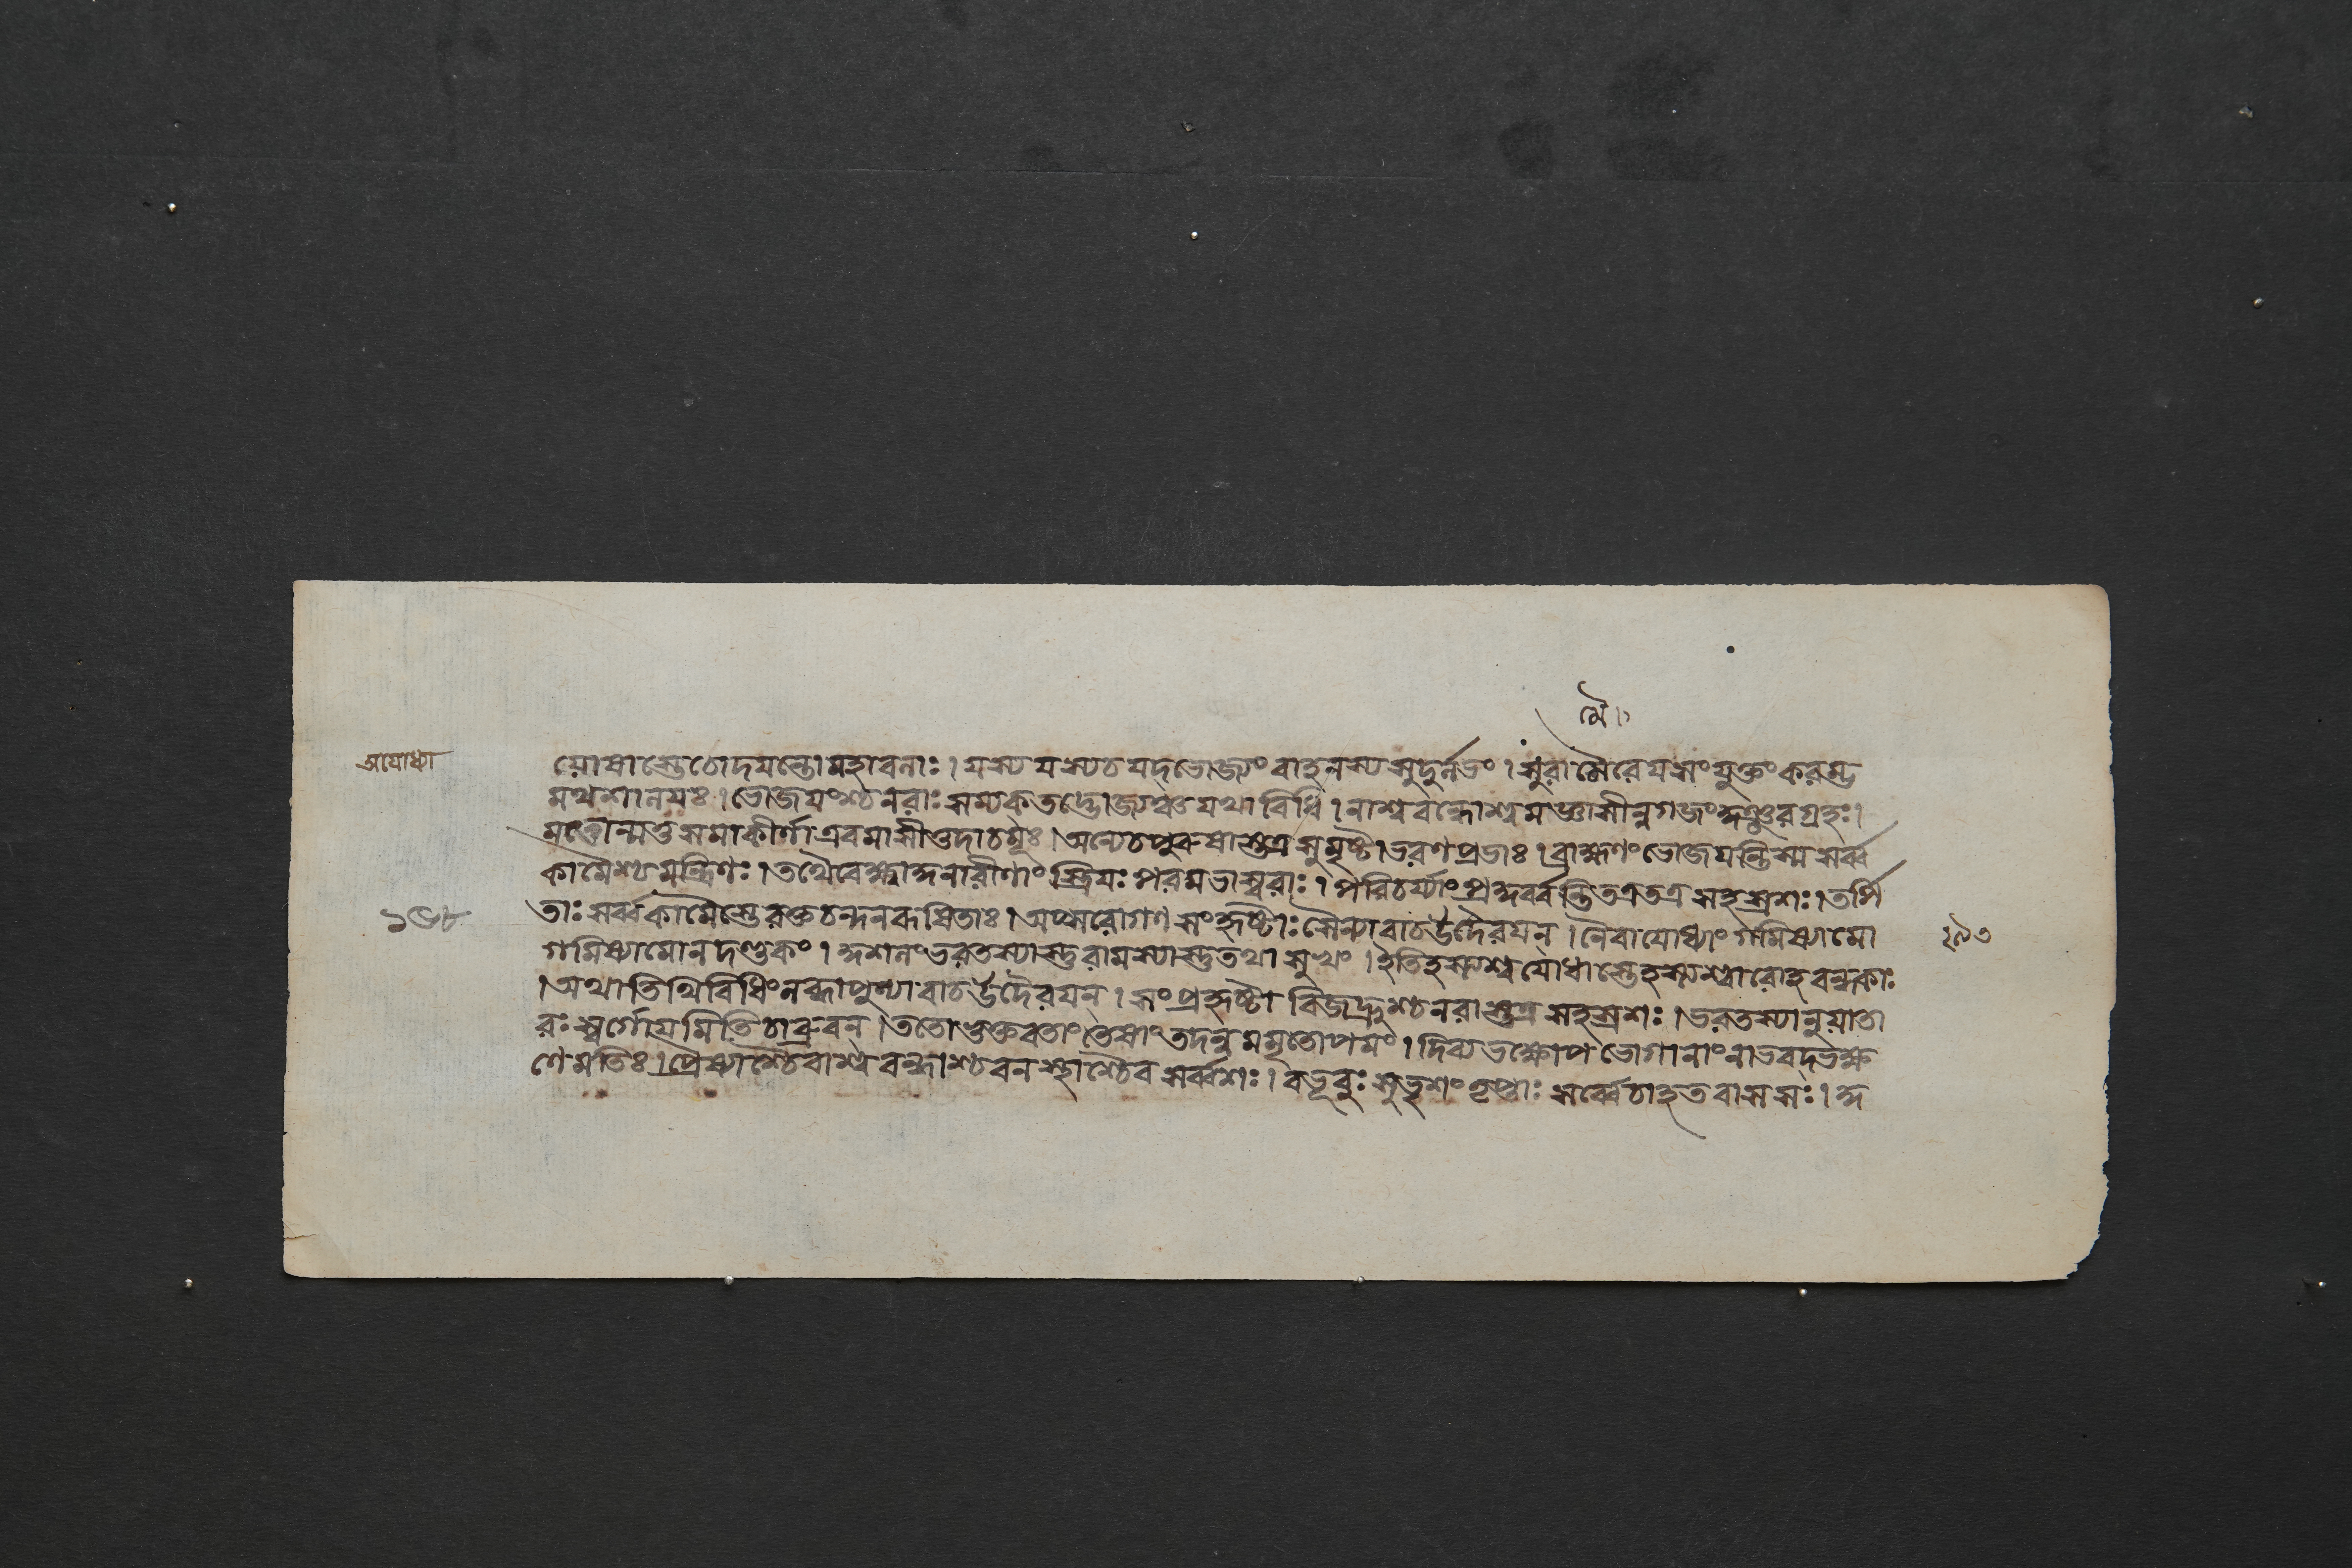 মৈ।
অযোধ্যা
যোধাস্তেচোদযন্তোমহাবনাঃ। যস্যযস্যচযদ্ভোজ্যংবাহনস্যসুদুর্লভং। সুরামৈরেযসংযুক্তংকরম্ভ
ভোজযংশ্চনরাঃসম্যকতত্তদ্ভোজ্যঞ্চযথাবিধি। নাশ্ববন্ধোশ্বমাজ্ঞাসীন্নগজংকুঞ্জরগ্রহঃ।
মত্তোন্মত্তসমাকীর্ণাএবমাসীত্তদাচমূঃ। অন্যেচপুরুষাস্তত্রসুমৃষ্টাভরণপ্রভাঃ। ব্রাহ্মণংভোজযন্তিস্মসর্ব্ব
কামৈশ্চমন্ত্রিণঃ। স্ত্রিযঃপরমভাস্বরাঃ। পরিচর্য্যাং তত্রতত্রসহস্রশঃ। তর্পি
১৬৮
তাঃসর্ব্বকামৈস্তেরক্তচন্দনরূষিতাঃ। অপ্সরোগণসংহৃষ্টাঃসৈন্যাবাচউদৈরযন্। নৈবাযোধ্যাংগমিষ্যামো
২৯৩
গমিষ্যামোনদণ্ডকং। কুশলংভরতস্যাস্তুরামস্যাস্তুতথাসুখং। ইতিহস্ত্যশ্বযোধাস্তেহস্ত্যশ্বারোহবন্ধকাঃ
। অথাতিথিবিধিংলব্ধ্বাপুণ্যাবাচউদৈরযন্। সংপ্রহৃষ্টা নরাস্তত্রসহস্রশঃ। ভরতস্যানুযাতা
রঃস্বর্গোযমিতিচাব্রুবন্। ততোভুক্তবতাংতেষাংতদন্নমমৃতোপমং। দিব্যভক্ষ্যোপভোগানাংনাভবদ্ভক্ষ
ণেমতিঃ। প্রেষ্যাশ্চৈবাশ্ববন্ধাশ্চবনস্থাশ্চৈবসর্ব্বশঃ। বভূবুঃসুভৃশংতৃপ্তাঃসর্ব্বেচাহতবাসসঃ। কু